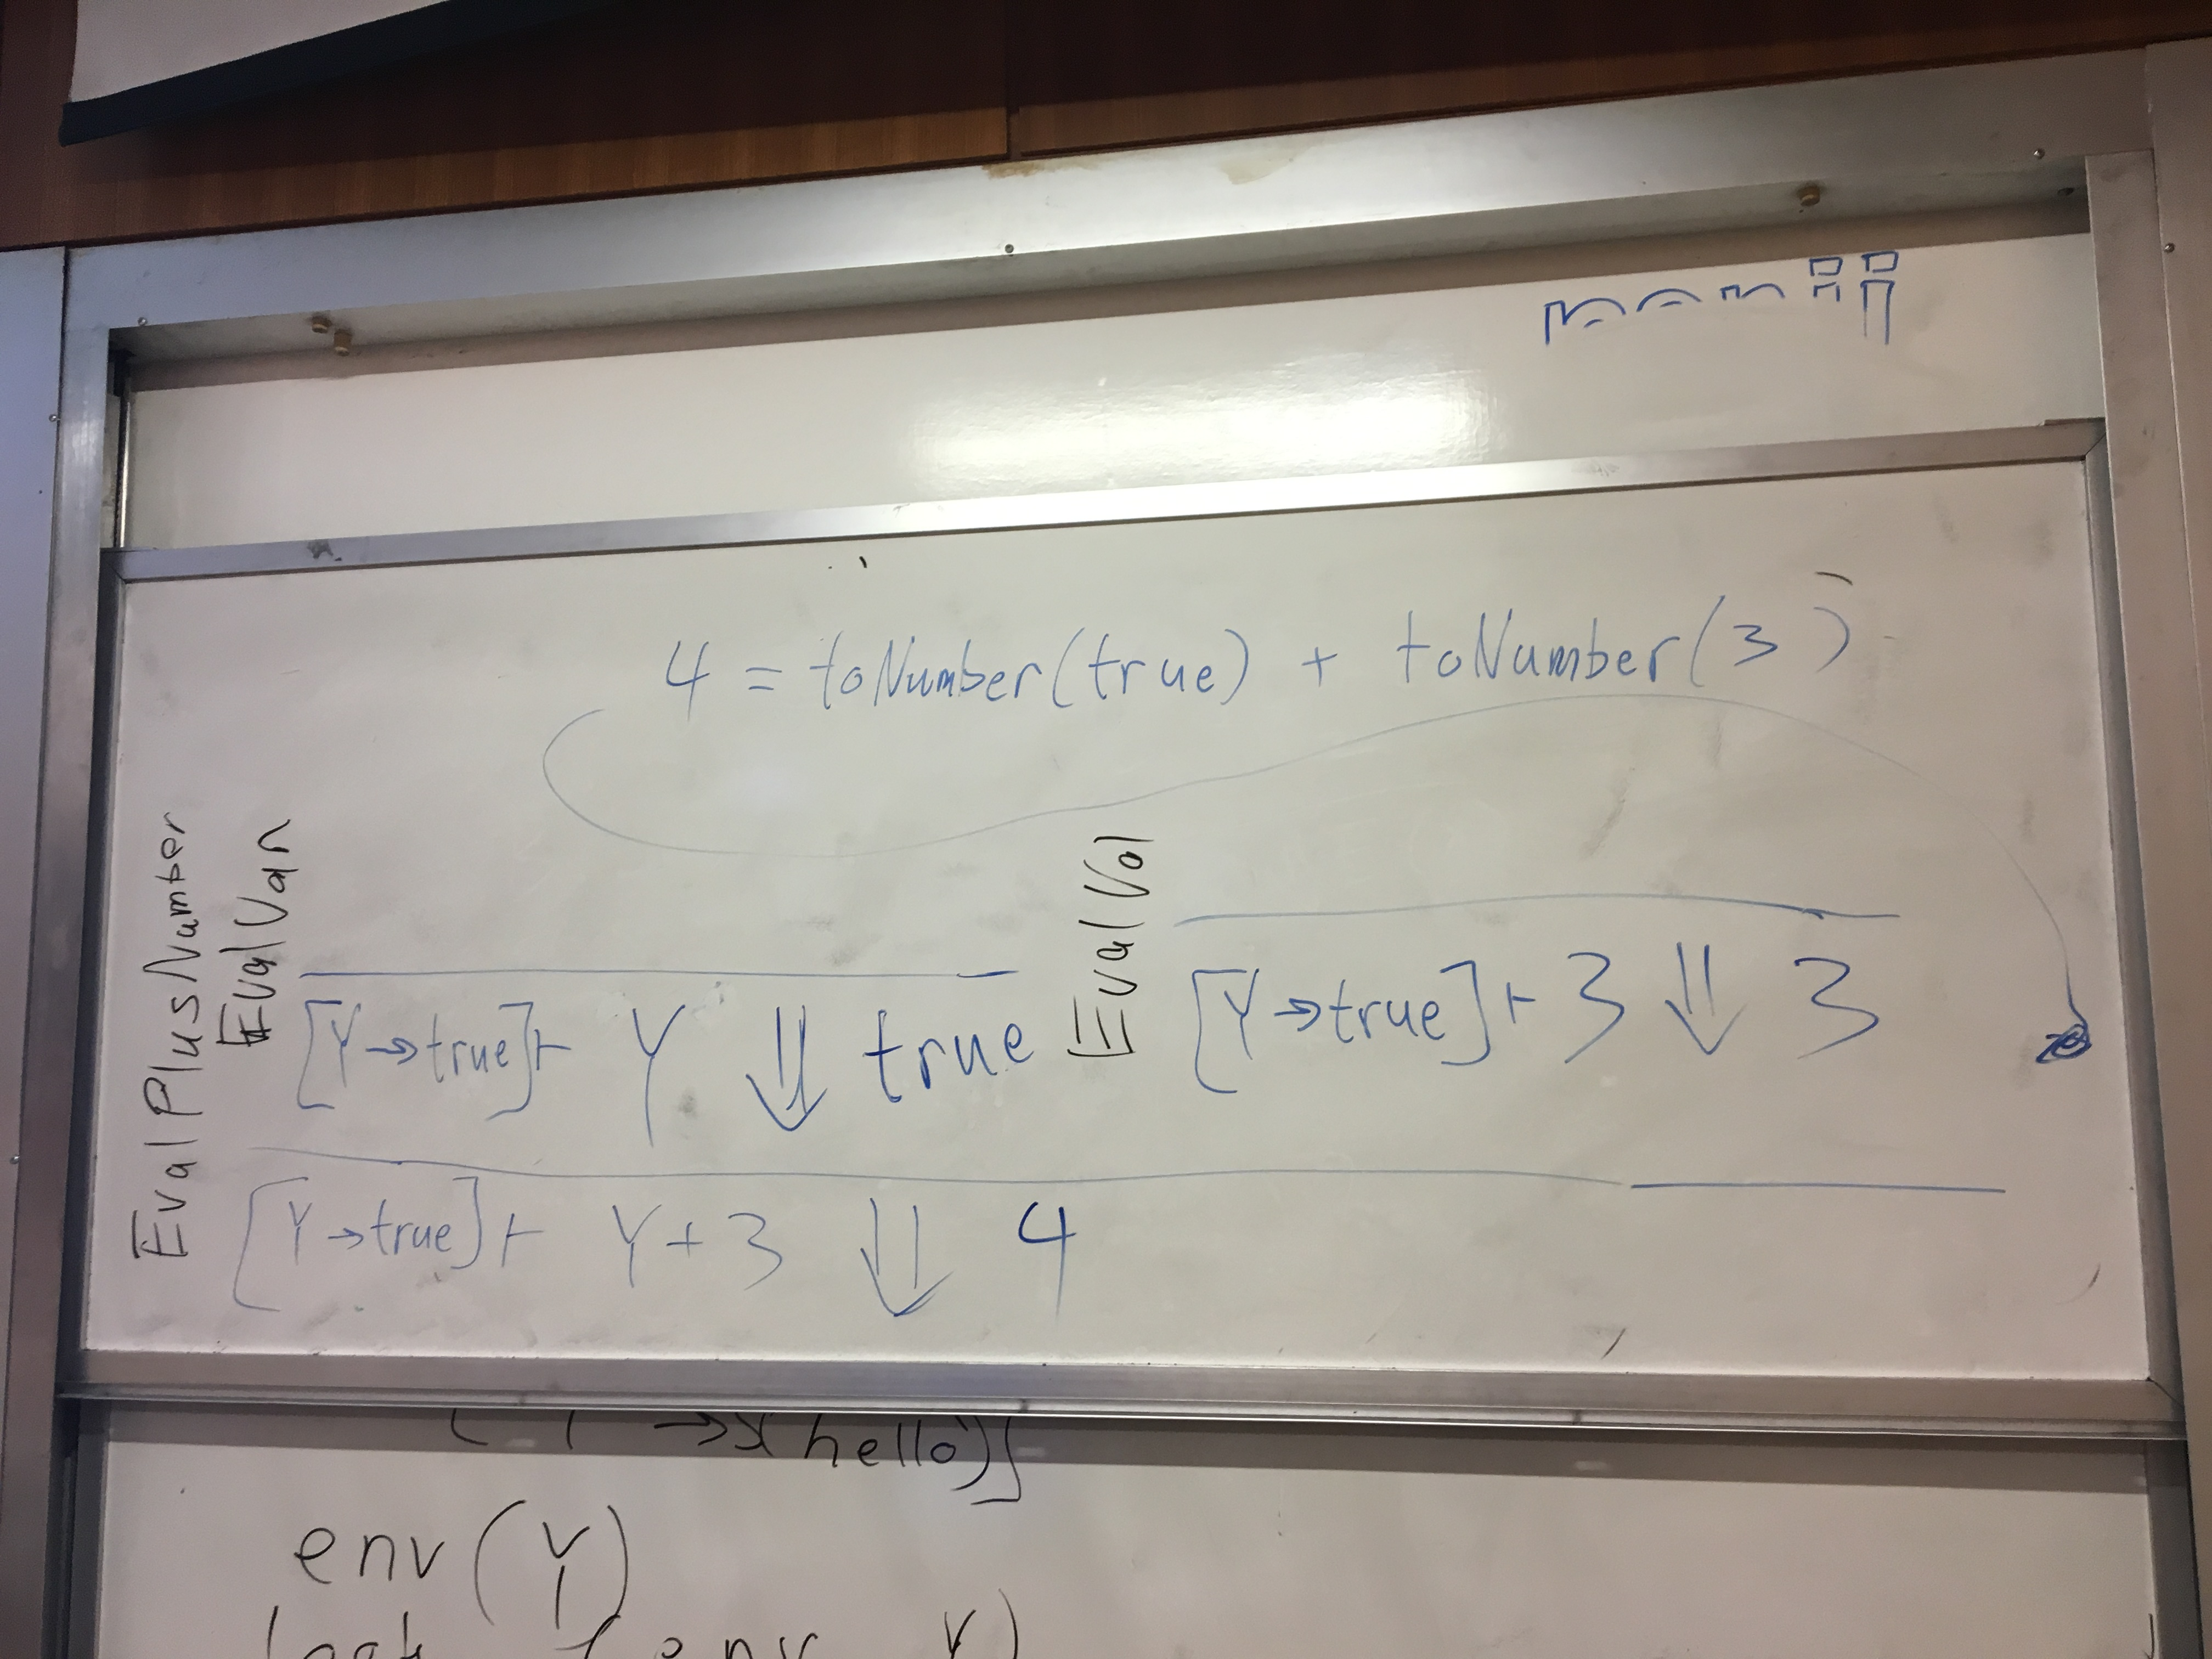 4 = toNumber(true) + toNumber(3)
EvalPlusNumber
EvalVar
[Y→true]⊢ Y ⇓ true
EvalVal
[Y→true]⊢ 3 ⇓ 3
[Y→true]⊢ Y+3 ⇓ 4
hello)]
env(Y)